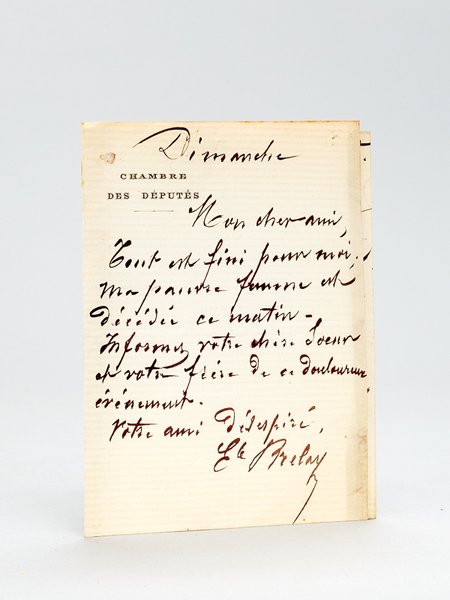 Dimanche
CHAMBRE
DES DÉPUTÉS
Mon cher ami,
Tout est fini pour moi.
Ma pauvre femme est
décédée ce matin.
Informez votre chère Soeur
et votre frère de ce douloureux
évènement.
Votre ami désespéré,
Ete Brelay